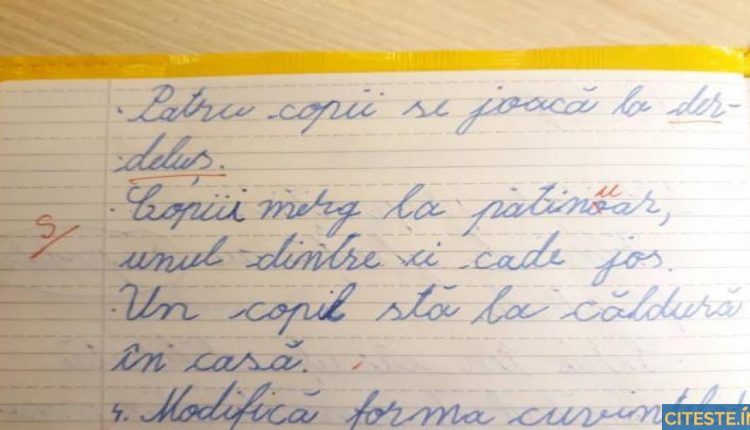 · Patru copii se joacă la der-
deluș.
· Copiii merg la patinoar,
u
S/
unul dintre ei cade jos.
· Un copil stă la căldură
în casă.
4. Modifică forma
CITESTE.